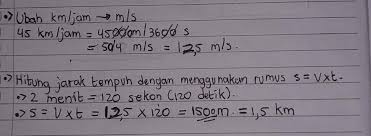 •> Ubah km/jam → m/s
45 km/jam = 45000m/3600 s
= 50/4 m/s = 12,5 m/s.
•> Hitung jarak tempuh dengan menggunakan rumus s = v x t.
•> 2 menit = 120 sekon (120 detik).
•> S = V x t = 12,5 x 120 = 1500m = 1,5 km